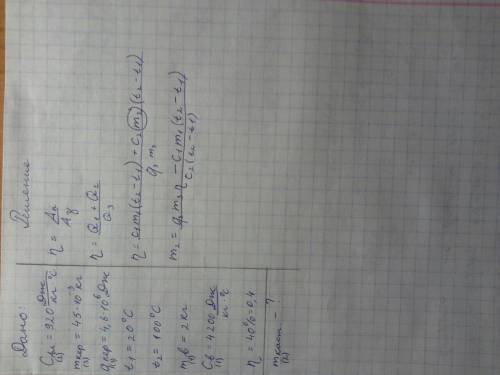 Дано:
C(2) = 920 Дж/кг °C
m кер (3) = 45·10⁻³ кг
q кер = 4,6·10⁶ Дж
t₁ = 20°C
t₂ = 100°C
m в = 2 кг
C в (1) = 4200 Дж/кг·°C
η = 40% = 0,4
m каст (2) - ?
Решение
η = Aп/Aз
η = Q₁ + Q₂/Q₃
η = c₁m₁(t₂-t₁) + c₂m₂(t₂-t₁)/q₃m₃
m₂ = q₃m₃η - c₁m₁(t₂-t₁)/c₂(t₂-t₁)